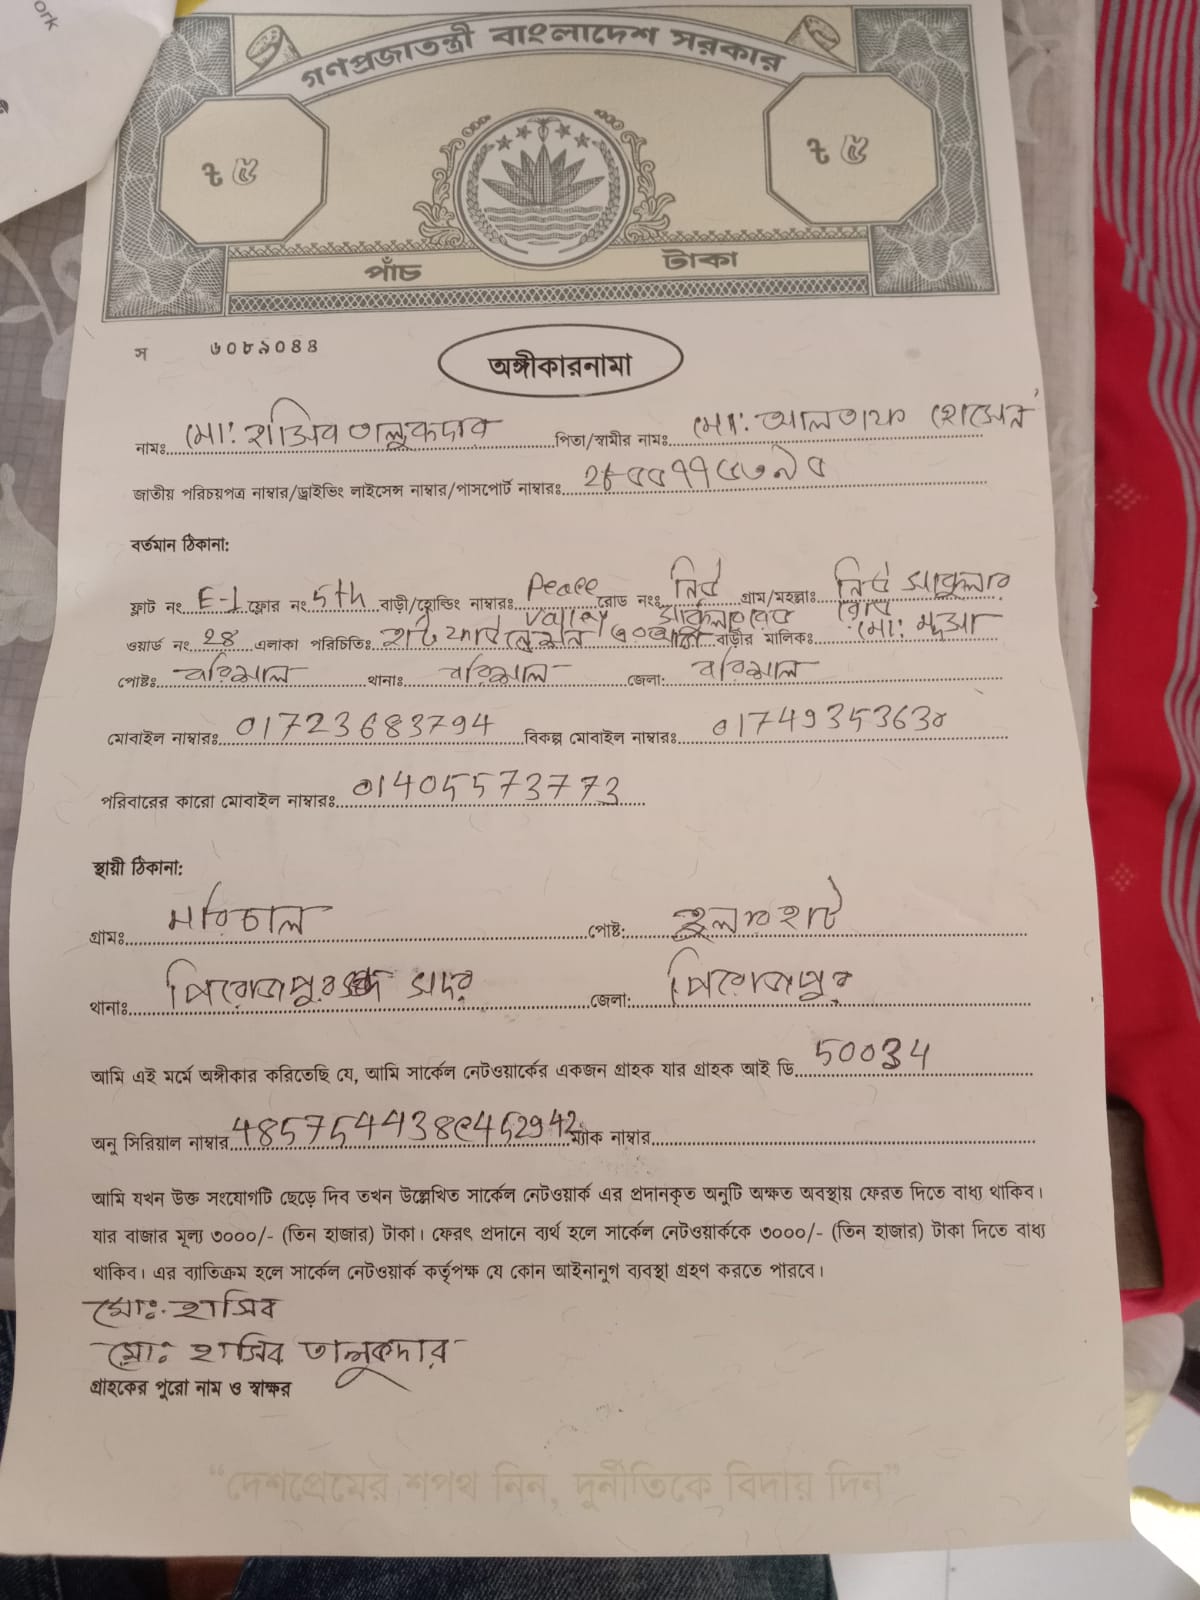 ork
গণপ্রজাতন্ত্রী বাংলাদেশ সরকার
৳ ৫ ৳ ৫
পাঁচ টাকা
স ৬০৮৯০৪৪
অঙ্গীকারনামা
নামঃ মো: হাসিব তালুকদার পিতা/স্বামীর নামঃ মো: আলতাফ হোসেন
জাতীয় পরিচয়পত্র নাম্বার/ড্রাইভিং লাইসেন্স নাম্বার/পাসপোর্ট নাম্বারঃ
বর্তমান ঠিকানা:
ফ্লাট নং E-1 ফ্লোর নং 5th বাড়ী/হোল্ডিং নাম্বারঃ Peace Valley রোড নংঃ নিউ সার্কুলার রোড গ্রাম/মহল্লাঃ নিউ সার্কুলার রোড
ওয়ার্ড নং 28 এলাকা পরিচিতিঃ বাড়ীর মালিকঃ মো:
পোষ্টঃ বরিশাল থানাঃ বরিশাল জেলা: বরিশাল
মোবাইল নাম্বারঃ 01723683794 বিকল্প মোবাইল নাম্বারঃ
পরিবারের কারো মোবাইল নাম্বারঃ 01405573773
স্থায়ী ঠিকানা:
গ্রামঃ মরিচাল পোষ্ট: হুলারহাট
থানাঃ পিরোজপুর সদর জেলা: পিরোজপুর
আমি এই মর্মে অঙ্গীকার করিতেছি যে, আমি সার্কেল নেটওয়ার্কের একজন গ্রাহক যার গ্রাহক আই ডি 50034
অনু সিরিয়াল নাম্বার ম্যাক নাম্বার
আমি যখন উক্ত সংযোগটি ছেড়ে দিব তখন উল্লেখিত সার্কেল নেটওয়ার্ক এর প্রদানকৃত অনুটি অক্ষত অবস্থায় ফেরত দিতে বাধ্য থাকিব।
যার বাজার মূল্য ৩০০০/- (তিন হাজার) টাকা। ফেরৎ প্রদানে ব্যর্থ হলে সার্কেল নেটওয়ার্ককে ৩০০০/- (তিন হাজার) টাকা দিতে বাধ্য
থাকিব। এর ব্যাতিক্রম হলে সার্কেল নেটওয়ার্ক কর্তৃপক্ষ যে কোন আইনানুগ ব্যবস্থা গ্রহণ করতে পারবে।
মোঃ হাসিব
মোঃ হাসিব তালুকদার
গ্রাহকের পুরো নাম ও স্বাক্ষর
“দেশপ্রেমের শপথ নিন, দুর্নীতিকে বিদায় দিন”